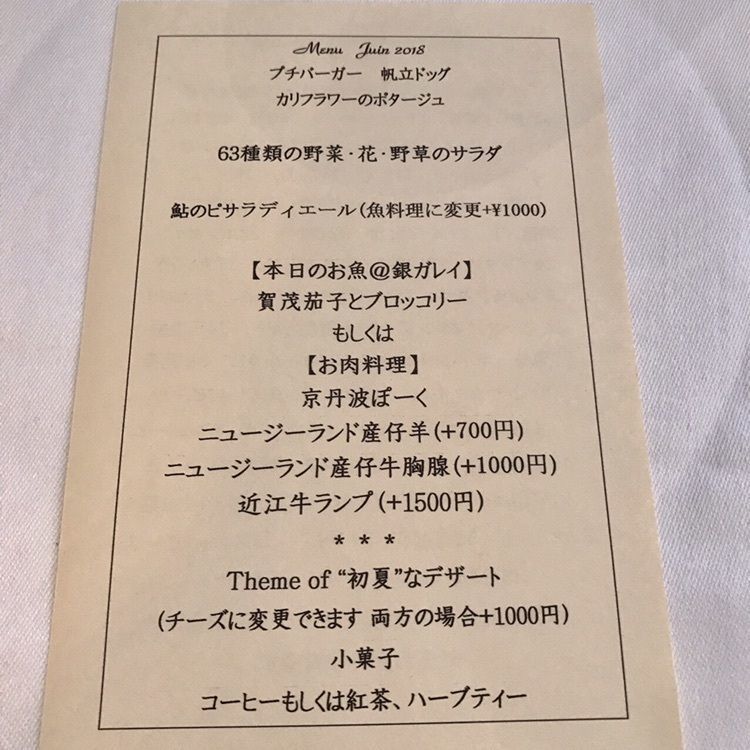 Menu Juin 2018
プチバーガー 帆立ドッグ
カリフラワーのポタージュ
63種類の野菜・花・野草のサラダ
鮎のピサラディエール(魚料理に変更+¥1000)
【本日のお魚@銀ガレイ】
賀茂茄子とブロッコリー
もしくは
【お肉料理】
京丹波ぽーく
ニュージーランド産仔羊(+700円)
ニュージーランド産仔牛胸腺(+1000円)
近江牛ランプ(+1500円)
* * *
Theme of “初夏”なデザート
(チーズに変更できます 両方の場合+1000円)
小菓子
コーヒーもしくは紅茶、ハーブティー